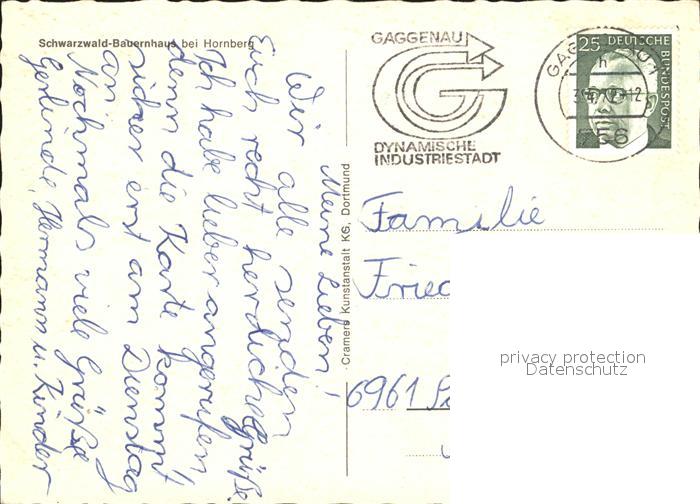 Schwarzwald-Bauernhaus bei Hornberg
Meine Lieben!
Wir alle senden
Euch recht herzliche Grüße.
Ich habe lieber angerufen,
denn die Karte kommt
sicher erst am Dienstag
an.
Nochmals viele Grüße
Gerlinde, Hermann u. Kinder
Cramers Kunstanstalt KG, Dortmund
GAGGENAU
DYNAMISCHE
INDUSTRIESTADT
25 DEUTSCHE
BUNDESPOST
h
756
Familie
Fried
6961
privacy protection
Datenschutz